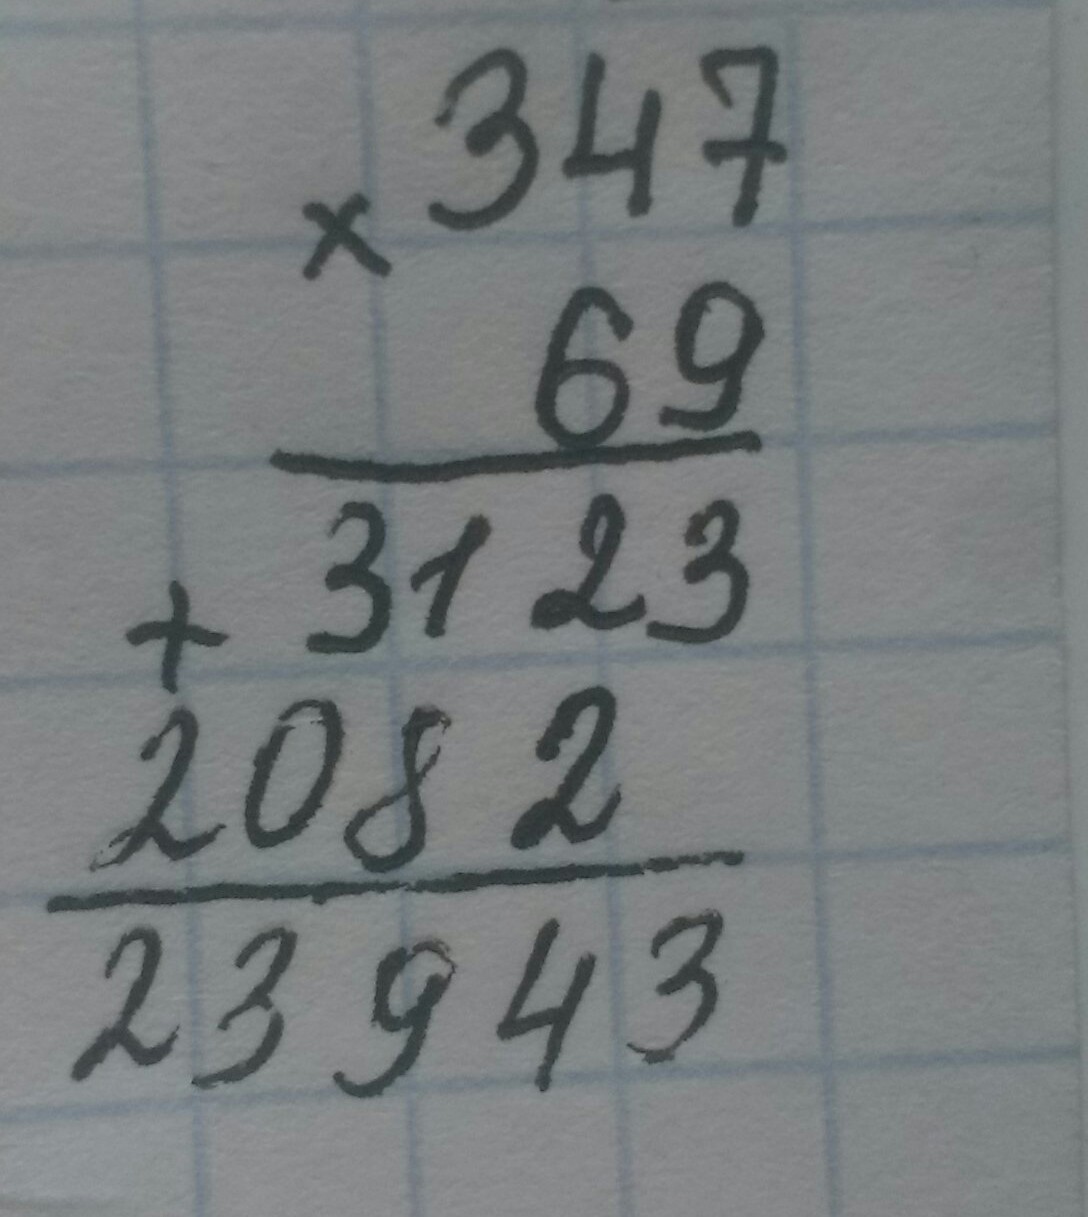 × 347
69
+ 3123
2082
23943